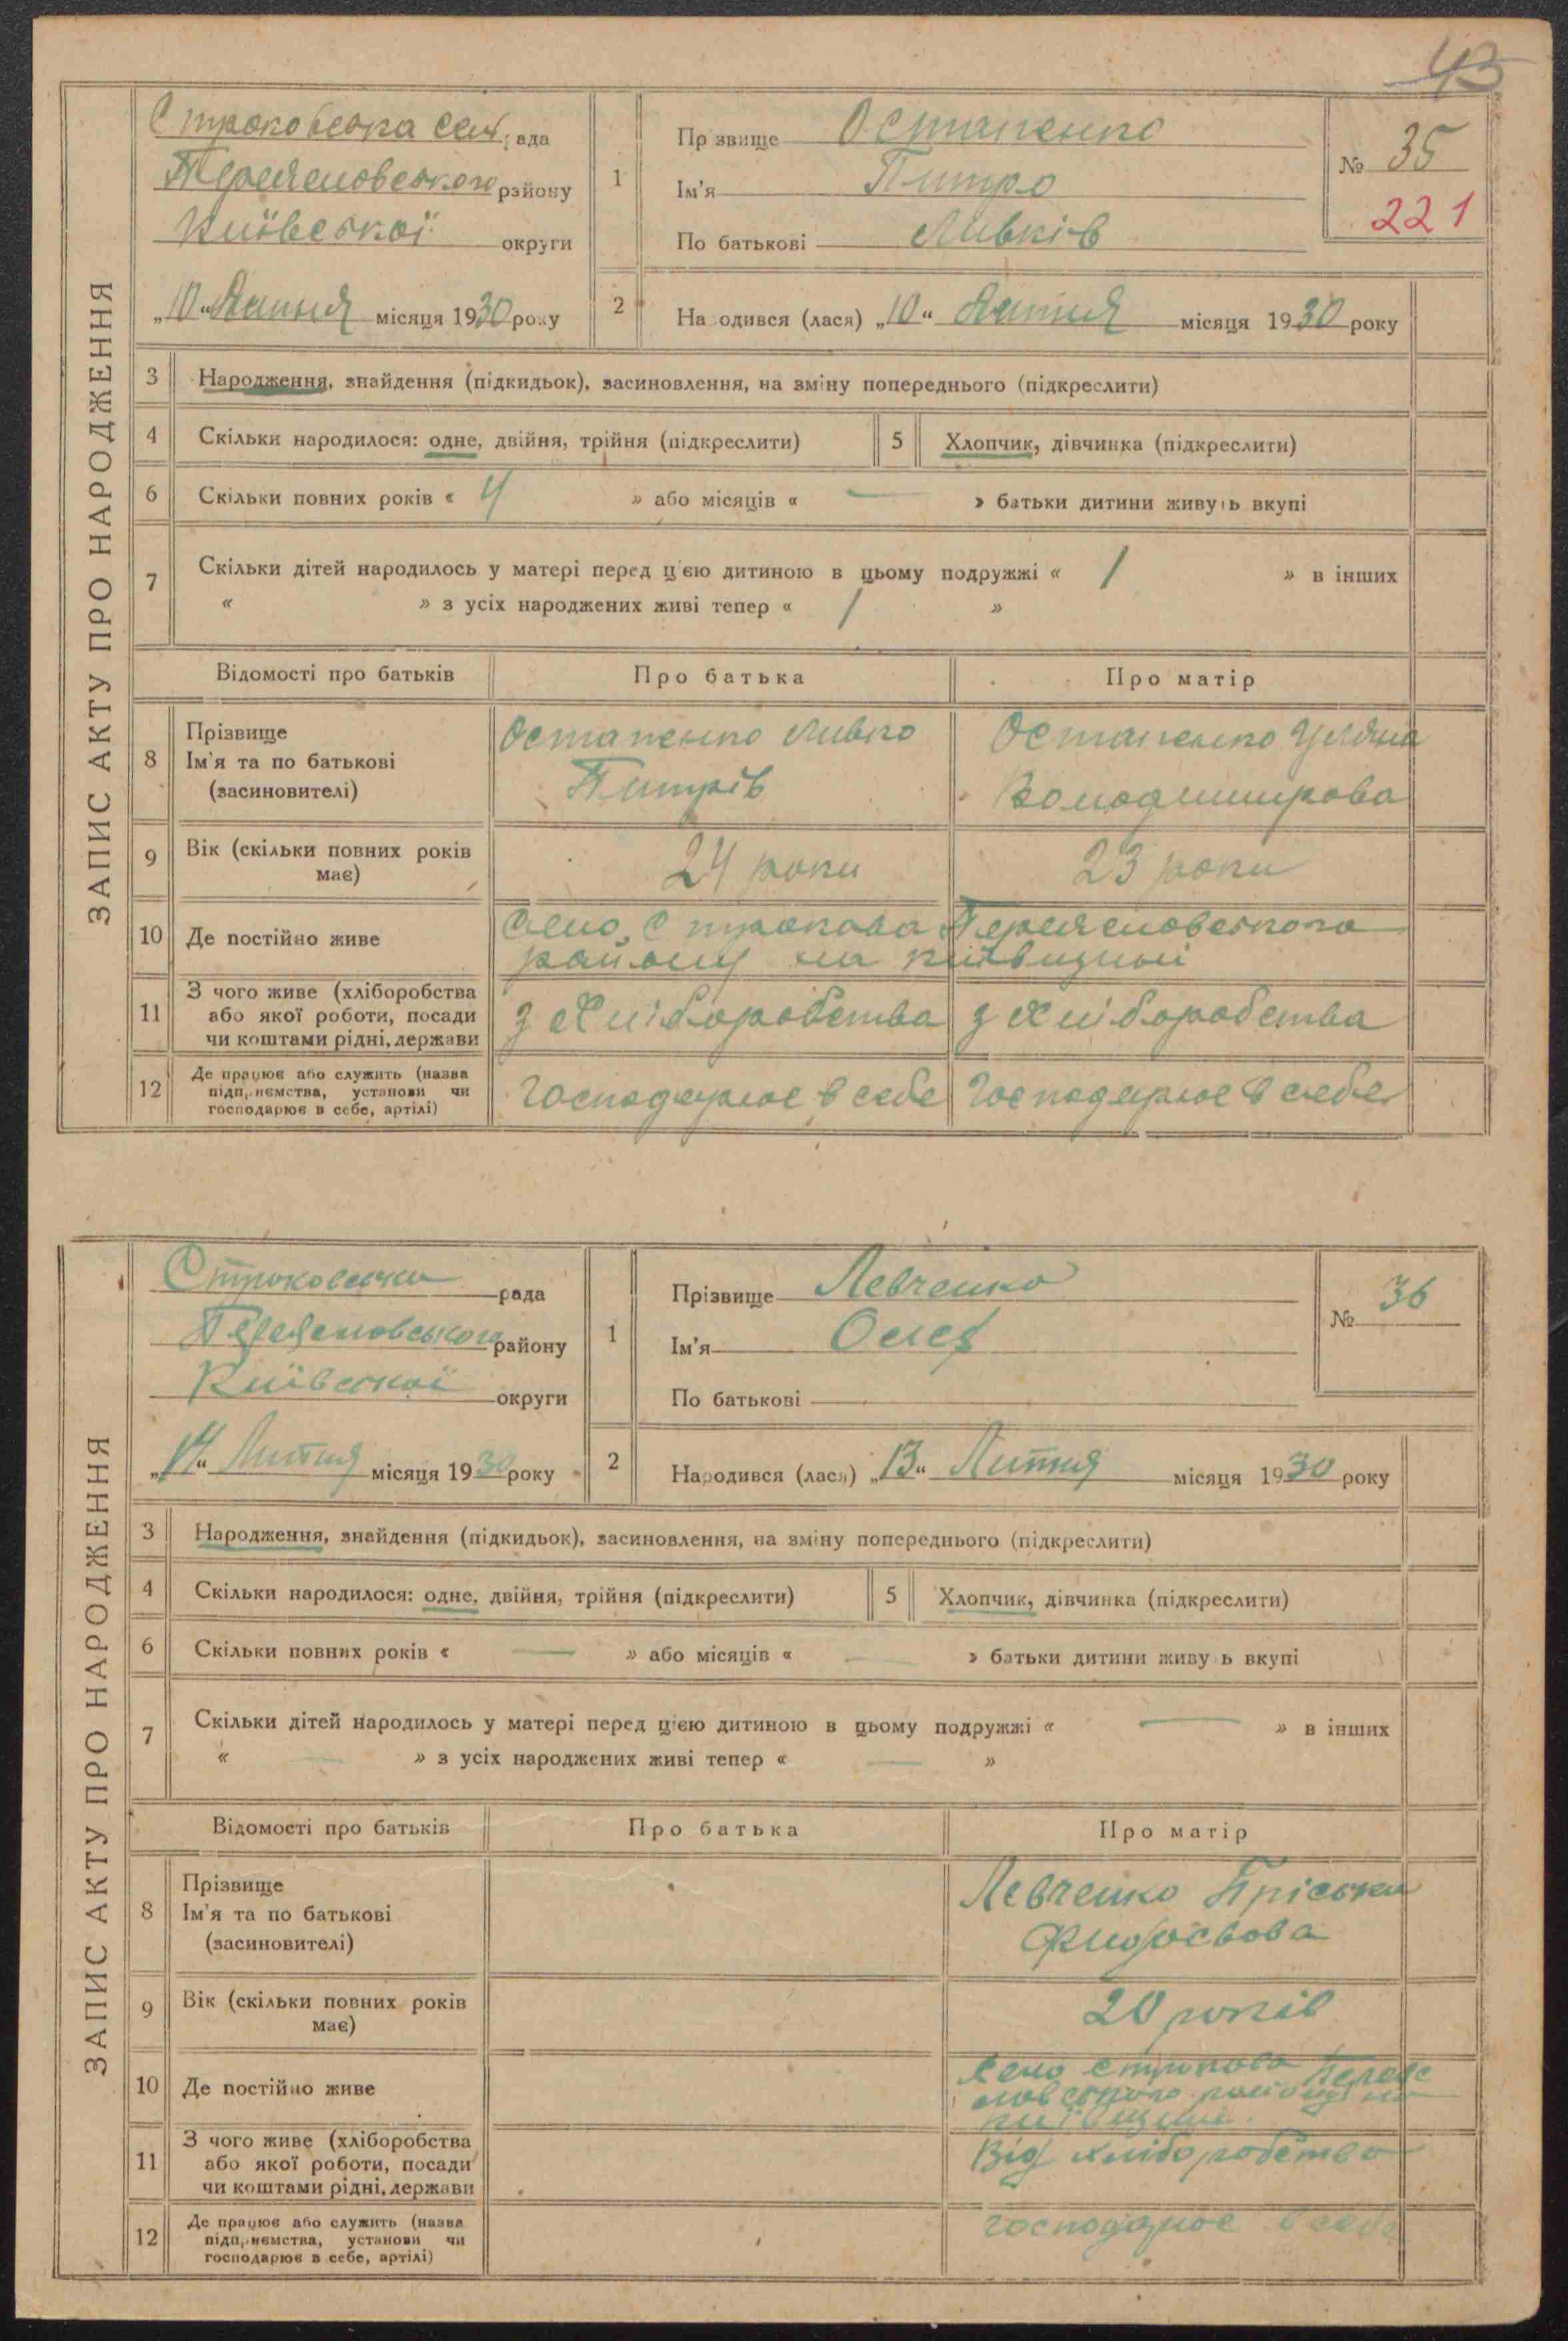 43
ЗАПИС АКТУ ПРО НАРОДЖЕННЯ
Строковська сел. рада
Переяславського району
Київської округи
„10“ Липня місяця 1930 року
1
Прізвище Остапенко
Ім'я Питро
По батькові Ливків
№ 35
221
2
Народився (лася) „10“ Липня місяця 1930 року
3 Народження, знайдення (підкидьок), засиновлення, на зміну попереднього (підкреслити)
4 Скільки народилося: одне, двійня, трійня (підкреслити) 5 Хлопчик, дівчинка (підкреслити)
6 Скільки повних років « 4 » або місяців « — » батьки дитини живуть вкупі
7 Скільки дітей народилось у матері перед цією дитиною в цьому подружжі « 1 » в інших
« » з усіх народжених живі тепер « 1 »
Відомості про батьків Про батька Про матір
8 Прізвище Ім'я та по батькові (засиновителі)
Остапенко Ливко Питрів
Остапенко Уляна Володимирова
9 Вік (скільки повних років має) 24 роки 23 роки
10 Де постійно живе Село Строкова Переяславського
району на Київщині
11 З чого живе (хліборобства або якої роботи, посади чи коштами рідні, держави
з хліборобства з хліборобства
12 Де працює або служить (назва підприємства, установи чи господарює в себе, артілі)
господарює в себе господарює в себе
ЗАПИС АКТУ ПРО НАРОДЖЕННЯ
рада
Переяславського району
Київської округи
„14“ Липня місяця 1930 року
1
Прізвище Левченко
Ім'я
По батькові
№ 36
2
Народився (лася) „13“ Липня місяця 1930 року
3 Народження, знайдення (підкидьок), засиновлення, на зміну попереднього (підкреслити)
4 Скільки народилося: одне, двійня, трійня (підкреслити) 5 Хлопчик, дівчинка (підкреслити)
6 Скільки повних років « — » або місяців « — » батьки дитини живуть вкупі
7 Скільки дітей народилось у матері перед цією дитиною в цьому подружжі « — » в інших
« — » з усіх народжених живі тепер « — »
Відомості про батьків Про батька Про матір
8 Прізвище Ім'я та по батькові (засиновителі)
Левченко Пріська
9 Вік (скільки повних років має) 20 років
10 Де постійно живе
Село Строкова Переяс
лавського району на
Київщині.
11 З чого живе (хліборобства або якої роботи, посади чи коштами рідні, держави
Від хліборобства
12 Де працює або служить (назва підприємства, установи чи господарює в себе, артілі)
господарює в себе